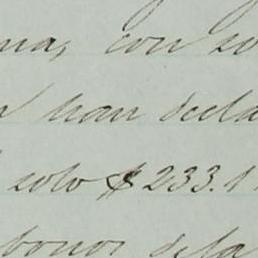 con so
n han decla
solo $233.1
bonos de la